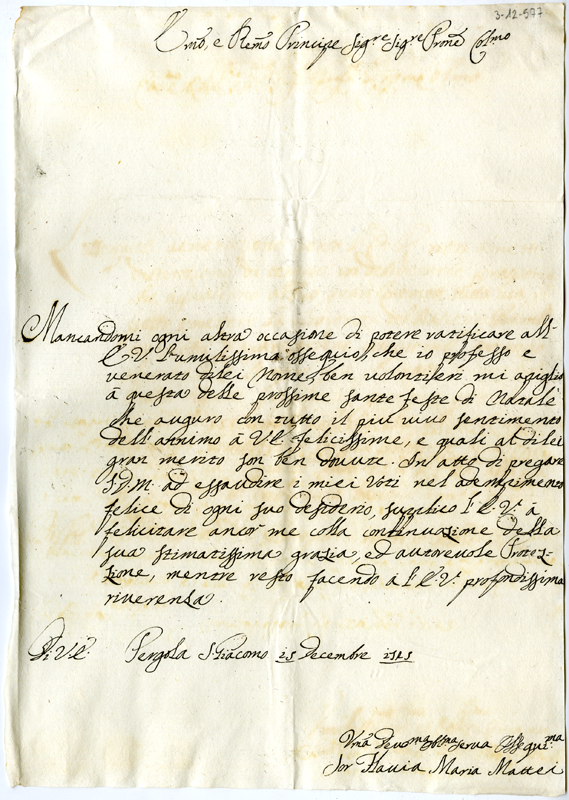 3-12-597
Emo, e Remo Principe Sigre Sigre Prone Colmo
Mancandomi ogni altra occasione di potere ratificare all'
E V l'umilissimo ossequio, che io professo e
venerato di lei Nome, ben volontieri mi apiglio
à questa delle prossime sante feste di Natale
che auguro con tutto il più vivo sentimento
dell'annimo à V.E. felicissime, e quali al di lei
gran merito son ben dovute. In atto di pregare
S.D.M. ad essaudire i miei Voti nel adempimento
felice di ogni suo desiderio, suplico l'E.V. à
felicitare ancor me colla continuazione della
sua stimatissima grazia, ed autorevole Protez-
zione, mentre resto facendo à l'E.V. profondissima
riverensa.
Di V.E. Pergola S. Giacomo 15 Decembre
Vma Devoma Obma serva Ossequima
Sor Flavia Maria Mattei